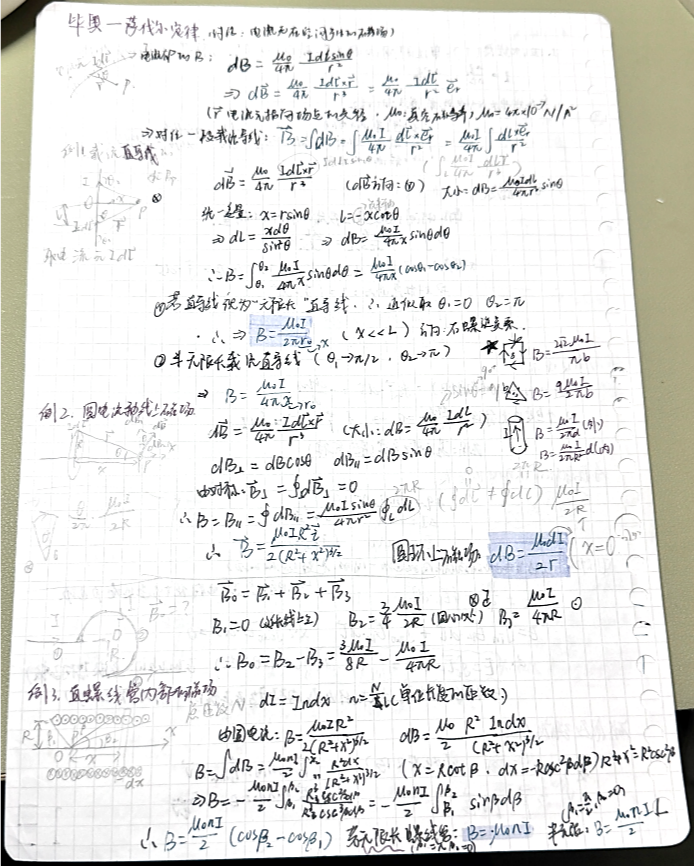 毕奥一萨伐尔定律
dB = μ₀/4π Idl sinθ/r²
⇒ dB⃗ = μ₀/4π Idl⃗×r⃗/r³ = μ₀/4π Idl⃗/r² e⃗r
⇒对任一段载流导线: B⃗=∫dB⃗ = ∫ μ₀I/4π dl⃗×e⃗r/r² = μ₀I/4π ∫ dl⃗×e⃗r/r²
例1 载流直导线
dB⃗ = μ₀/4π Idl⃗×r⃗/r³ (dB⃗方向:⊗) 大小: dB = μ₀Idl/4πr² sinθ
取电流元Idl⃗
统一变量: x = r sinθ l = -x cotθ
⇒ dl = xdθ/sin²θ ⇒ dB = μ₀I/4πx sinθdθ
∴ B = ∫θ₁θ₂ μ₀I/4πx sinθdθ = μ₀I/4πx (cosθ₁-cosθ₂)
①若直导线视为"无限长"直导线, ∴ 近似取 θ₁=0 θ₂=π
∴ ⇒ B = μ₀I/2πr₀→x (x<<L) 方向:右螺旋
②半无限长载流直导线 (θ₁→π/2, θ₂→π)
B = 2√2μ₀I/πb
B = 9μ₀I/2πb
⇒ B = μ₀I/4πx→r₀
B = μ₀I/2πd (外)
B = μ₀I/2πR² d (内)
2πR
例2. 圆电流轴线上磁场
dB⃗ = μ₀/4π Idl⃗×r⃗/r³ (大小: dB = μ₀/4π Idl/r²)
dB⊥ = dBcosθ dB∥ = dBsinθ
由对称: B⃗⊥ = ∮dB⃗⊥ = 0
∴ B = B∥ = ∮dB∥ = μ₀I sinθ/4πr² ∮L dl 2πR
∴ B⃗ = μ₀IR²i⃗/2(R²+x²)^3/2
圆环心磁场 dB = μ₀dI/2r (x=0
μ₀I/2R
B⃗₀ = B⃗₁ + B⃗₂ + B⃗₃
B⃗₀=?
B₁=0 (延长线上) B₂ = 3/4 μ₀I/2R ⊗ B₃ = μ₀I/4πR ⊙
∴ B₀ = B₂ - B₃ = 3μ₀I/8R - μ₀I/4πR
例3. 直螺线管内部的磁场
总匝数N dI = Indx n = N/L (单位长度的匝数)
由圆电流: B = μ₀IR²/2(R²+x²)^3/2 dB = μ₀/2 R²Indx/(R²+x²)^3/2
B = ∫dB = μ₀nI/2 ∫x₁x₂ R²dx/(R²+x²)^3/2 (x = Rcotβ, dx = -Rcsc²βdβ) R²+x²=R²csc²β
⇒ B = -μ₀nI/2 ∫β₁β₂ R³csc²βdβ/R³csc³β = -μ₀nI/2 ∫β₁β₂ sinβdβ
∴ B = μ₀nI/2 (cosβ₂-cosβ₁) 若无限长螺线管: B = μ₀nI
B = μ₀nI/2